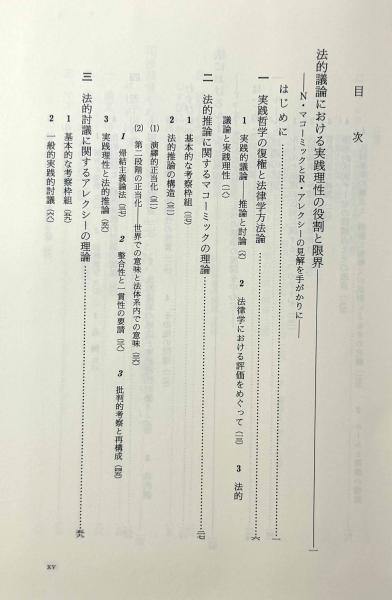 目次
法的議論における実践理性の役割と限界 一
――N・マコーミックとR・アレクシーの見解を手がかりに――
はじめに 一
一 実践哲学の復権と法律学方法論 六
1 実践的議論――推論と討論(六) 2 法律学における評価をめぐって(一三) 3 法的
議論と実践理性(一八)
二 法的推論に関するマコーミックの理論 二七
1 基本的な考察枠組(二七)
2 法的推論の構造(三一)
(1) 演繹的正当化(三一)
(2) 第二段階の正当化――世界での意味と法体系内での意味(三六)
1 帰結主義論法(三七) 2 整合性と一貫性の要請(三八) 3 批判的考察と再構成(四四)
3 実践理性と法的討議
三 法的討議に関するアレクシーの理論 五九
1 基本的な考察枠組(五九)
2 一般的実践的討議(六六)
xv